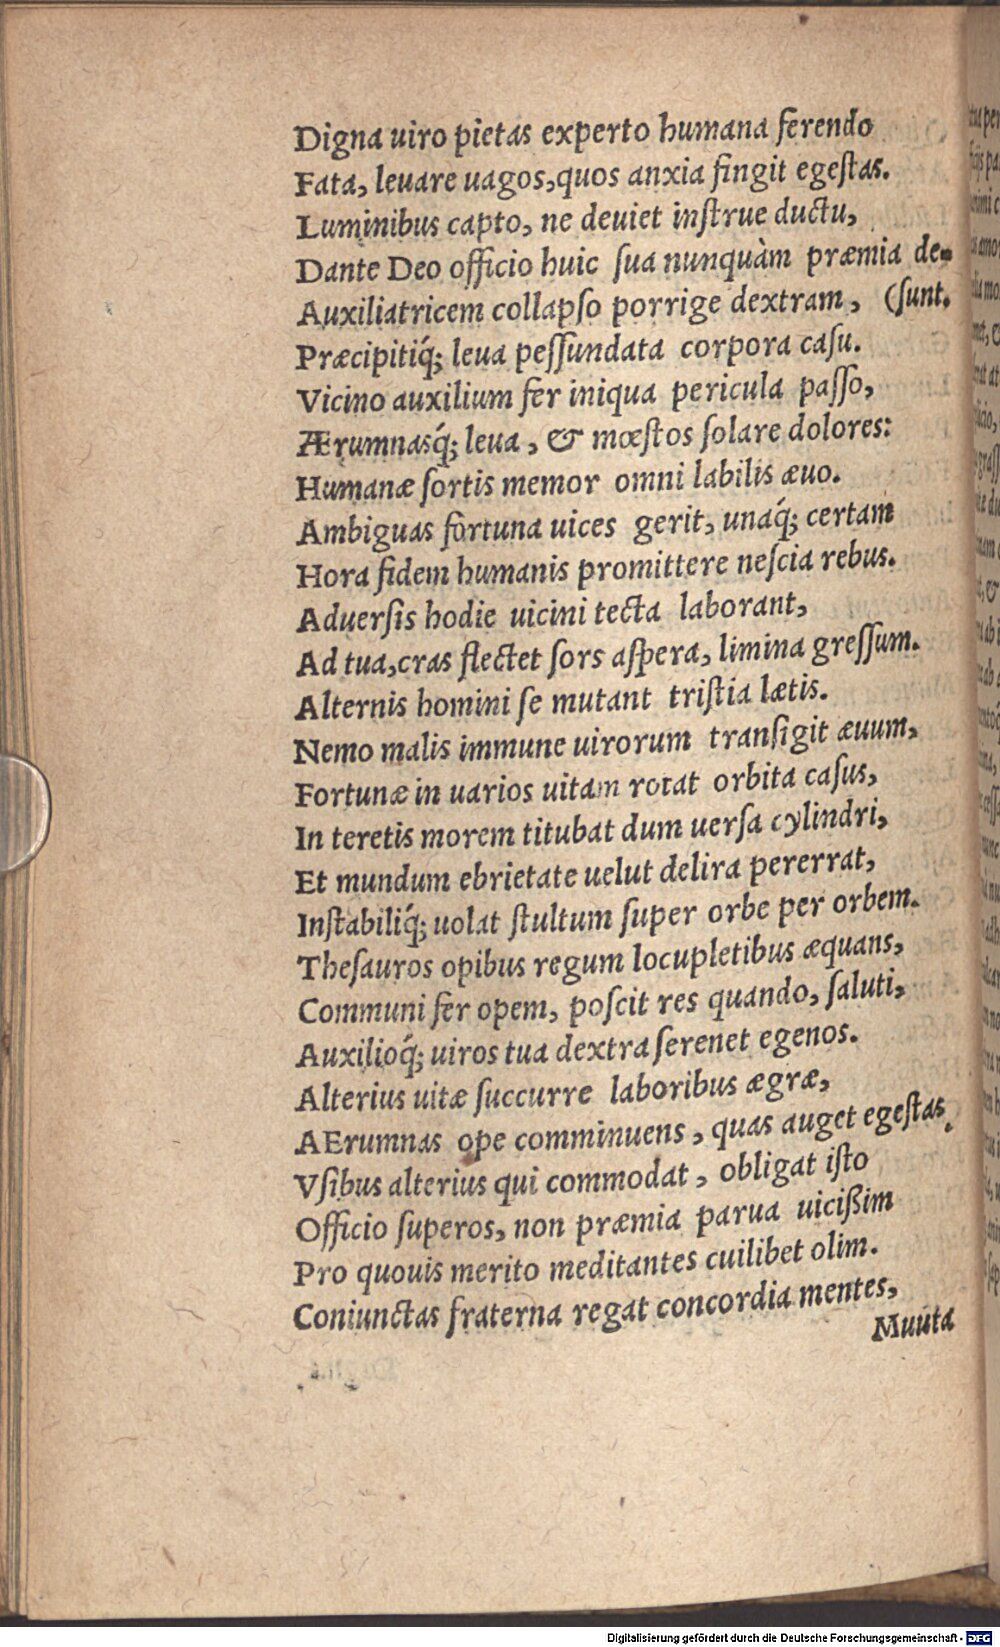 Digna uiro pietas experto humana ferendo
Fata, leuare uagos, quos anxia fingit egeſtas.
Luminibus capto, ne deuiet inſtrue ductu,
Dante Deo officio huic ſua nunquàm præmia de-
Auxiliatricem collapſo porrige dextram, (ſunt.
Præcipitiq́; leua peſſundata corpora caſu.
Vicino auxilium fer iniqua pericula paſſo,
Ærumnasq́; leua, & mœſtos ſolare dolores:
Humanæ ſortis memor omni labilis æuo.
Ambiguas fortuna uices gerit, unaq́; certam
Hora fidem humanis promittere neſcia rebus.
Aduerſis hodie uicini tecta laborant,
Ad tua, cras flectet ſors aſpera, limina greſſum.
Alternis homini ſe mutant triſtia lætis.
Nemo malis immune uirorum tranſigit æuum,
Fortunæ in uarios uitam rotat orbita caſus,
In teretis morem titubat dum uerſa cylindri,
Et mundum ebrietate uelut delira pererrat,
Inſtabiliq́; uolat ſtultum ſuper orbe per orbem.
Theſauros opibus regum locupletibus æquans,
Communi fer opem, poſcit res quando, ſaluti,
Auxilioq́; uiros tua dextra ſerenet egenos.
Alterius uitæ ſuccurre laboribus ægræ,
AErumnas ope comminuens, quas auget egeſtas.
Vſibus alterius qui commodat, obligat iſto
Officio ſuperos, non præmia parua uicißim
Pro quouis merito meditantes cuilibet olim.
Coniunctas fraterna regat concordia mentes,
Muuta
Digitalisierung gefördert durch die Deutsche Forschungsgemeinschaft - DFG